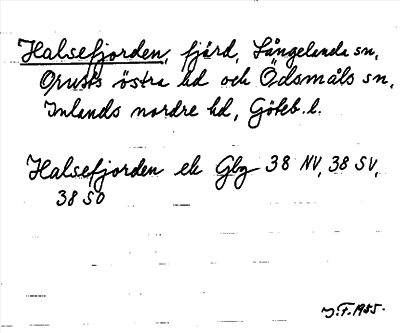 Halsefjorden, fjärd, Långelanda sn,
Orusts östra hd och Ödsmåls sn,
Inlands nordre hd, Göteb. l.
Halsefjorden ek Gbg 38 NV, 38 SV,
38 SO
J.F. 1955.